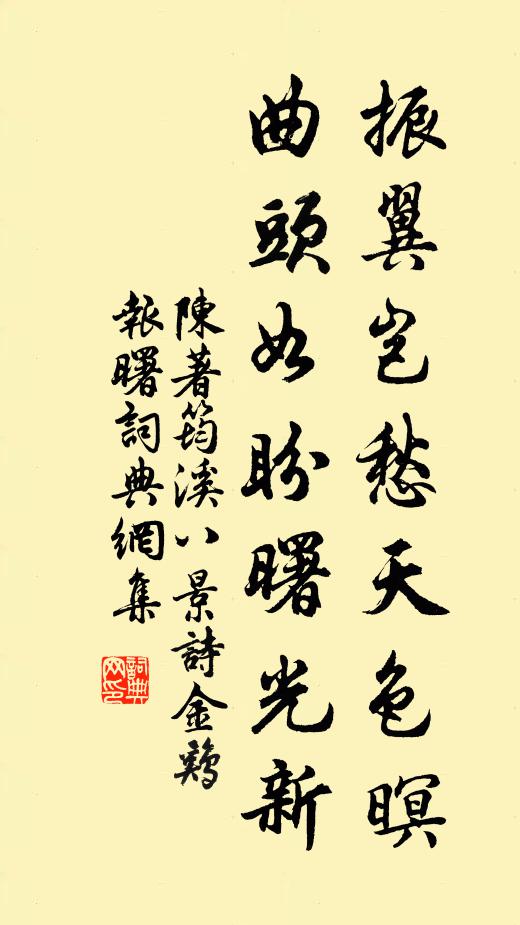 振翼豈愁天色暝
曲頭如盼曙光新
陳著筠溪八景詩金鷄
報曙詞典網集
詞典
网印